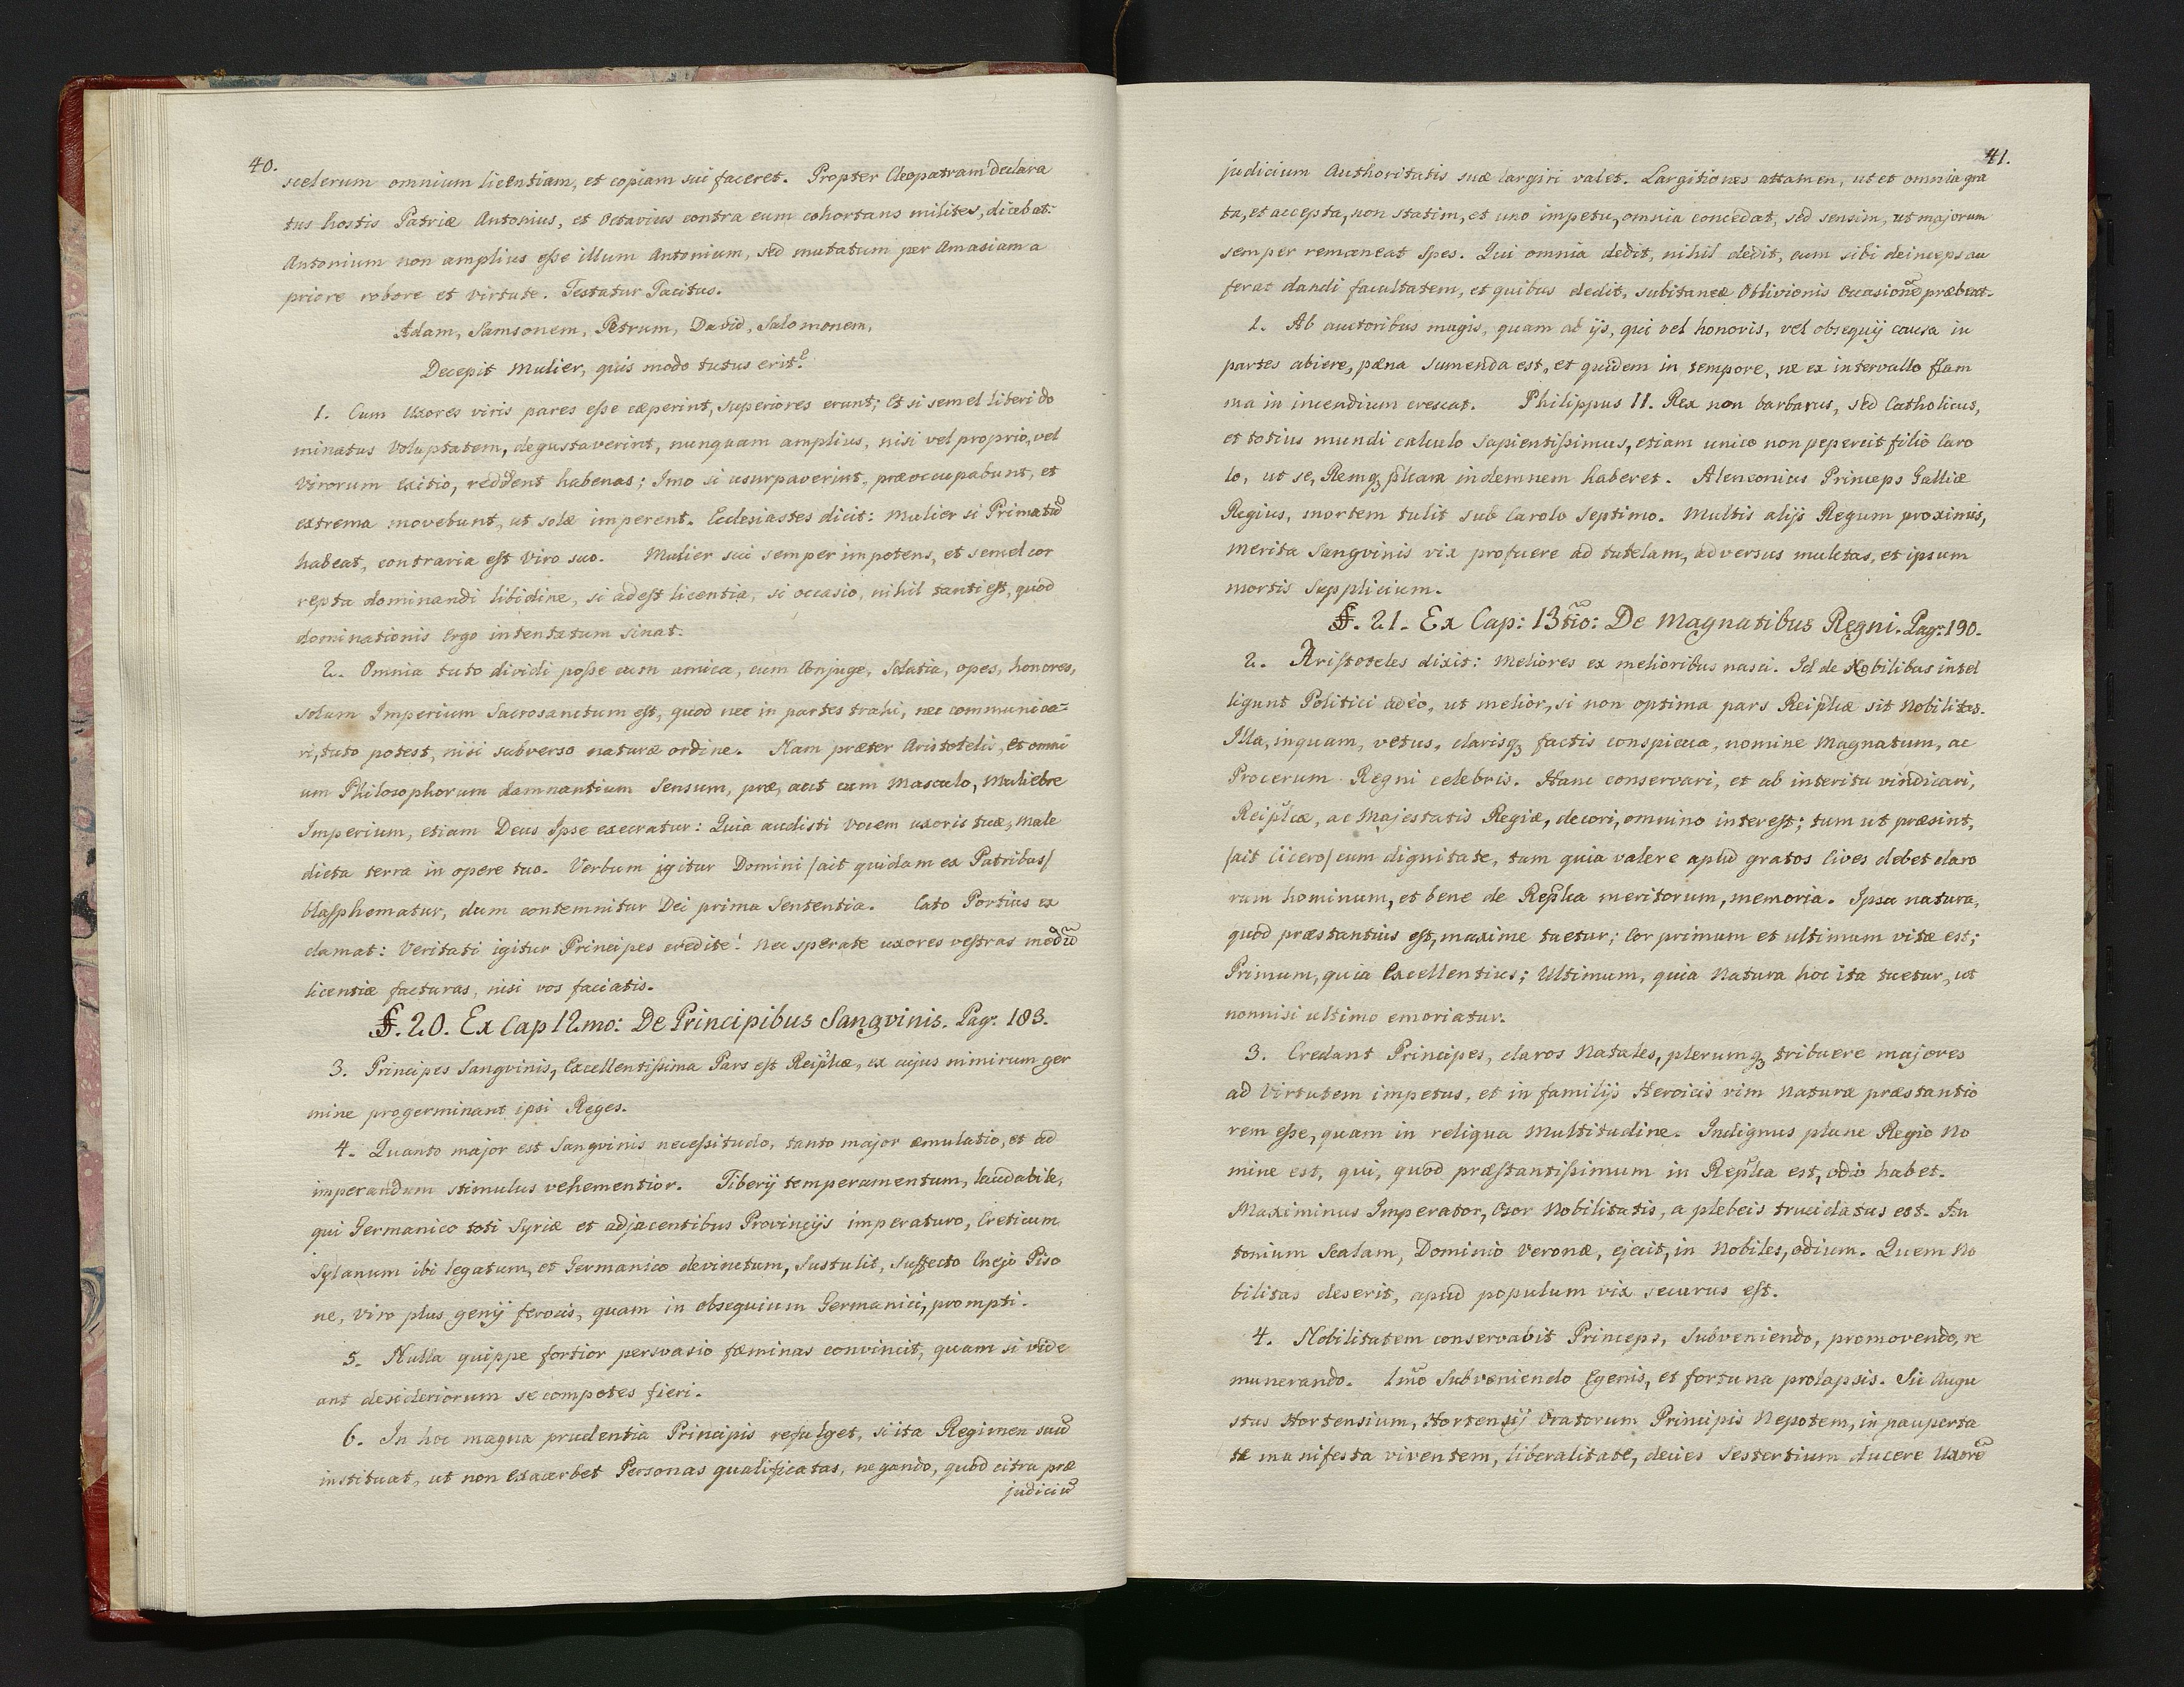 40.
scelerum omnium licentiam, et copiam sui faceret. Propter Cleopatram declara
tus hostis Patriæ Antonius, et Octavius contra eum cohortans milites, dicebat:
Antonium non amplius esse illum Antonium, sed mutatum per Amasiam a
priore robore et virtute. Testatur Tacitus.
Adam, Samsonem, Petrum, David, Salomonem,
Decepit Mulier, quis modo tutus erit?
1. Cum Uxores viris pares esse cæperint, superiores erunt; Et si semel liberi do
minatus Voluptatem, degustaverint, nunquam amplius, nisi vel proprio, vel
Virorum Exitio, reddent habenas; Imo si usurpaverint, præoccupabunt, et
extrema movebunt, ut solæ imperent. Ecclesiastes dicit: Mulier si Primatũ
habeat, contraria est Viro suo. Mulier sui semper impotens, et semel cor
repta dominandi libidine, si adest licentia, si occasio, nihil tanti est, quod
dominationis Ergo intentatum sinat.
2. Omnia tuto dividi posse cum amica, cum Conjuge, Solatia, opes, honores,
solum Imperium Sacrosanctum est, quod nec in partes trahi, nec communica=
ri, tuto potest, nisi subverso naturæ ordine. Nam præter Aristotelis, et omni
um Philosophorum damnantium Sensum, præ, aut cum Masculo, Muliebre
Imperium, etiam Deus Ipse execratur: Quia audisti Vocem uxoris tuæ, male
dicta terra in opere tuo. Verbum igitur Domini /ait quidam ex Patribus/
blasphematur, dum contemnitur Dei prima Sententia. Cato Portius ex
clamat: Veritati igitur Principes credite! nec sperate uxores vestras modũ
licentiæ facturas, nisi vos faciatis.
§. 20. Ex Cap 12mo: De Principibus Sangvinis. Pag: 183.
3. Principes Sangvinis, Excellentissima Pars est Reiplcæ, ex cujus nimirum ger
mine progerminant ipsi Reges.
4. Quanto major est Sangvinis necessitudo, tanto major æmulatio, et ad
imperandum stimulus vehementior. Tiberij temperamentum, laudabile,
qui Germanico toti Syriæ et adjacentibus Provincijs imperaturo, Creticum
Sylanum ibi legatum, et Germanico devinctum, Sustulit, Suffecto Cnejo Piso
ne, Viro plus genij ferocis, quam in obsequium Germanici, prompti.
5. Nulla quippe fortior persvasio fæminas convincit, quam si vide
ant desideriorum se compotes fieri.
6. In hoc magna prudentia Principis refulget, si ita Regimen suũ
instituat, ut non Exacerbet Personas qualificatas, negando, quod citra præ
judiciũ
41.
judicium Authoritatis suæ largiri valet. Largitiones attamen, ut et omnia gra
ta, et accepta, non statim, et uno impetu, omnia concedat, sed sensim, ut majorum
semper remaneat Spes. Qui omnia dedit, nihil dedit, cum sibi deinceps au
ferat dandi facultatem, et quibus dedit, subitaneæ Oblivionis Occasionẽ præbeat.
1. Ab auctoribus magis, quam ab ijs, qui vel honoris, vel obsequij causa in
partes abiere, pæna sumenda est, et quidem in tempore, ne ex intervallo flam
ma in incendium crescat. Philippus II. Rex non barbarus, sed Catholicus,
et totius mundi calculo Sapientissimus, etiam unico non pepercit filio Caro
lo, ut se, Remqȝ plicam indemnem haberet. Alenconius Princeps Galliæ
Regius, mortem tulit sub Carolo Septimo. Multis alijs Regum proximis,
merita Sangvinis vix profuere ad tutelam, adversus mulctas, et ipsum
mortis Supplicium.
§. 21. Ex Cap: 13tio: De Magnatibus Regni. Pag: 190.
2. Aristoteles dixit: Meliores ex melioribus nasci. Id de Nobilibus intel
ligunt Politici adeo, ut melior, si non optima pars Reiplcæ sit Nobilitas.
Illa, inquam, vetus, clarisqȝ factis conspicua, nomine Magnatum, ac
Procerum Regni celebris. Hanc conservari, et ab interitu vindicari,
Reiplcæ, ac Majestatis Regiæ, decori, omnino interest; tum ut præsint,
/ait Cicero/ cum dignitate, tum quia valere apud gratos Cives debet claro
rum hominum, et bene de Replca meritorum, memoria. Ipsa natura,
quod præstantius est, maxime tuetur; Cor primum et ultimum vitæ est;
Primum, quia Excellentius; Ultimum, quia Natura hoc ita tuetur, ut
nonnisi ultimo emoriatur.
3. Credant Principes, claros Natales, plerumqȝ tribuere majores
ad Virtutem impetus, et in familijs Heroicis vim Naturæ præstantio
rem esse, quam in reliqua Multitudine. Indignus plane Regio No
mine est, qui, quod præstantissimum in Replca est, odio habet.
Maximinus Imperator, Osor Nobilitatis, a plebeis trucidatus est. An
tonium Scalam, Dominio Veronæ, ejecit, in Nobiles, odium. Quem No
bilitas deserit, apud populum vix securus est.
4. Nobilitatem conservabit Princeps, Subveniendo, promovendo, re
munerando. 1mo Subveniendo Egenis, et fortuna prolapsis. Sic Augu
stus Hortensium, Hortensij Oratorum Principis Nepotem, in pauperta
te manifesta viventem, liberalitate, decies Sestertium ducere Uxorẽ